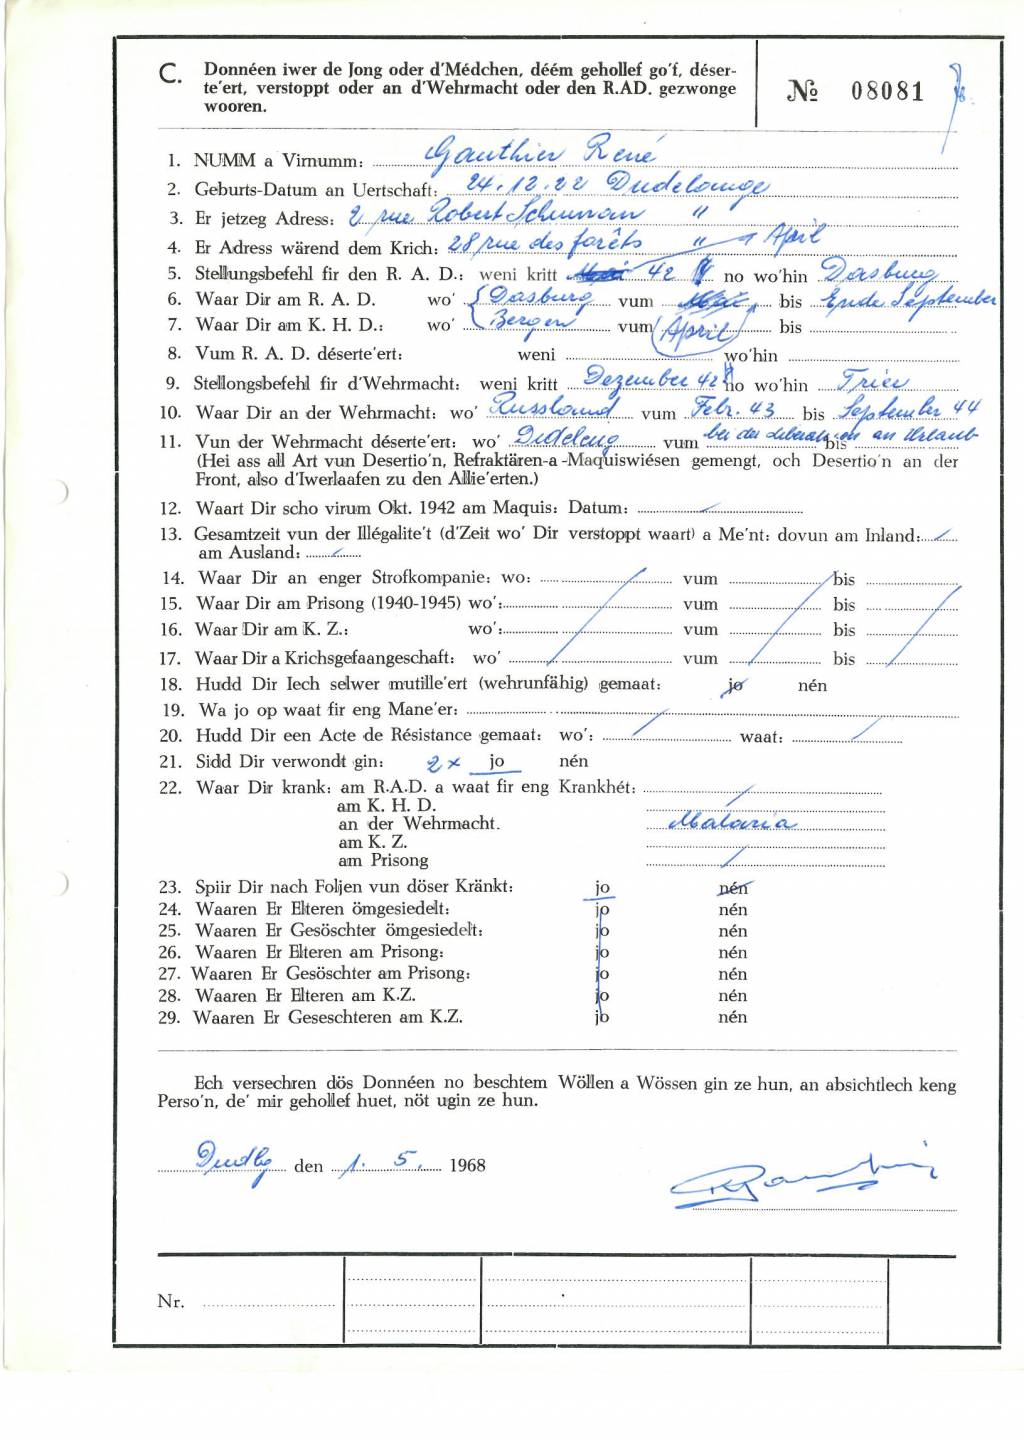 C. Donnéen iwer de Jong oder d'Médchen, déém gehollef go'f, déser-
te'ert, verstoppt oder an d'Wehrmacht oder den R.AD. gezwonge
wooren.
№ 08081
1. NUMM a Virnumm: Gauthier René
2. Geburts-Datum an Uertschaft: 24.12.22 Dudelange
3. Er jetzeg Adress: 2 rue Robert Schuman "
4. Er Adress wärend dem Krich: 28 rue des forêts " April
5. Stellungsbefehl fir den R. A. D.: weni kritt 42 no wo'hin Dasburg
6. Waar Dir am R. A. D. wo' Dasburg vum bis Ende September
7. Waar Dir am K. H. D.: wo' Bergen vum April bis
8. Vum R. A. D. déserte'ert: weni wo'hin
9. Stellongsbefehl fir d'Wehrmacht: weni kritt Dezember 42 no wo'hin Trier
10. Waar Dir an der Wehrmacht: wo' Russland vum Febr. 43 bis September 44
11. Vun der Wehrmacht déserte'ert: wo' Dideleng vum bei der Liberation bis an Urlaub
(Hei ass all Art vun Desertio'n, Refraktären-a-Maquiswiésen gemengt, och Desertio'n an der
Front, also d'Iwerlaafen zu den Allie'erten.)
12. Waart Dir scho virum Okt. 1942 am Maquis: Datum:
13. Gesamtzeit vun der Illégalite't (d'Zeit wo' Dir verstoppt waart) a Me'nt: dovun am Inland:
am Ausland:
14. Waar Dir an enger Strofkompanie: wo: vum bis
15. Waar Dir am Prisong (1940-1945) wo': vum bis
16. Waar Dir am K. Z.: wo': vum bis
17. Waar Dir a Krichsgefaangeschaft: wo' vum bis
18. Hudd Dir Iech selwer mutille'ert (wehrunfähig) gemaat: jo nén
19. Wa jo op waat fir eng Mane'er:
20. Hudd Dir een Acte de Résistance gemaat: wo': waat:
21. Sidd Dir verwondt gin: 2 x jo nén
22. Waar Dir krank: am R.A.D. a waat fir eng Krankhét:
am K. H. D.
an der Wehrmacht. Malaria
am K. Z.
am Prisong
23. Spiir Dir nach Foljen vun döser Kränkt: jo nén
24. Waaren Er Elteren ömgesiedelt: jo nén
25. Waaren Er Gesöschter ömgesiedelt: jo nén
26. Waaren Er Elteren am Prisong: jo nén
27. Waaren Er Gesöschter am Prisong: jo nén
28. Waaren Er Elteren am K.Z. jo nén
29. Waaren Er Geseschteren am K.Z. jo nén
Ech versechren dös Donnéen no beschtem Wöllen a Wössen gin ze hun, an absichtlech keng
Perso'n, de' mir gehollef huet, nöt ugin ze hun.
Dudlg den 1. 5. 1968
Nr.